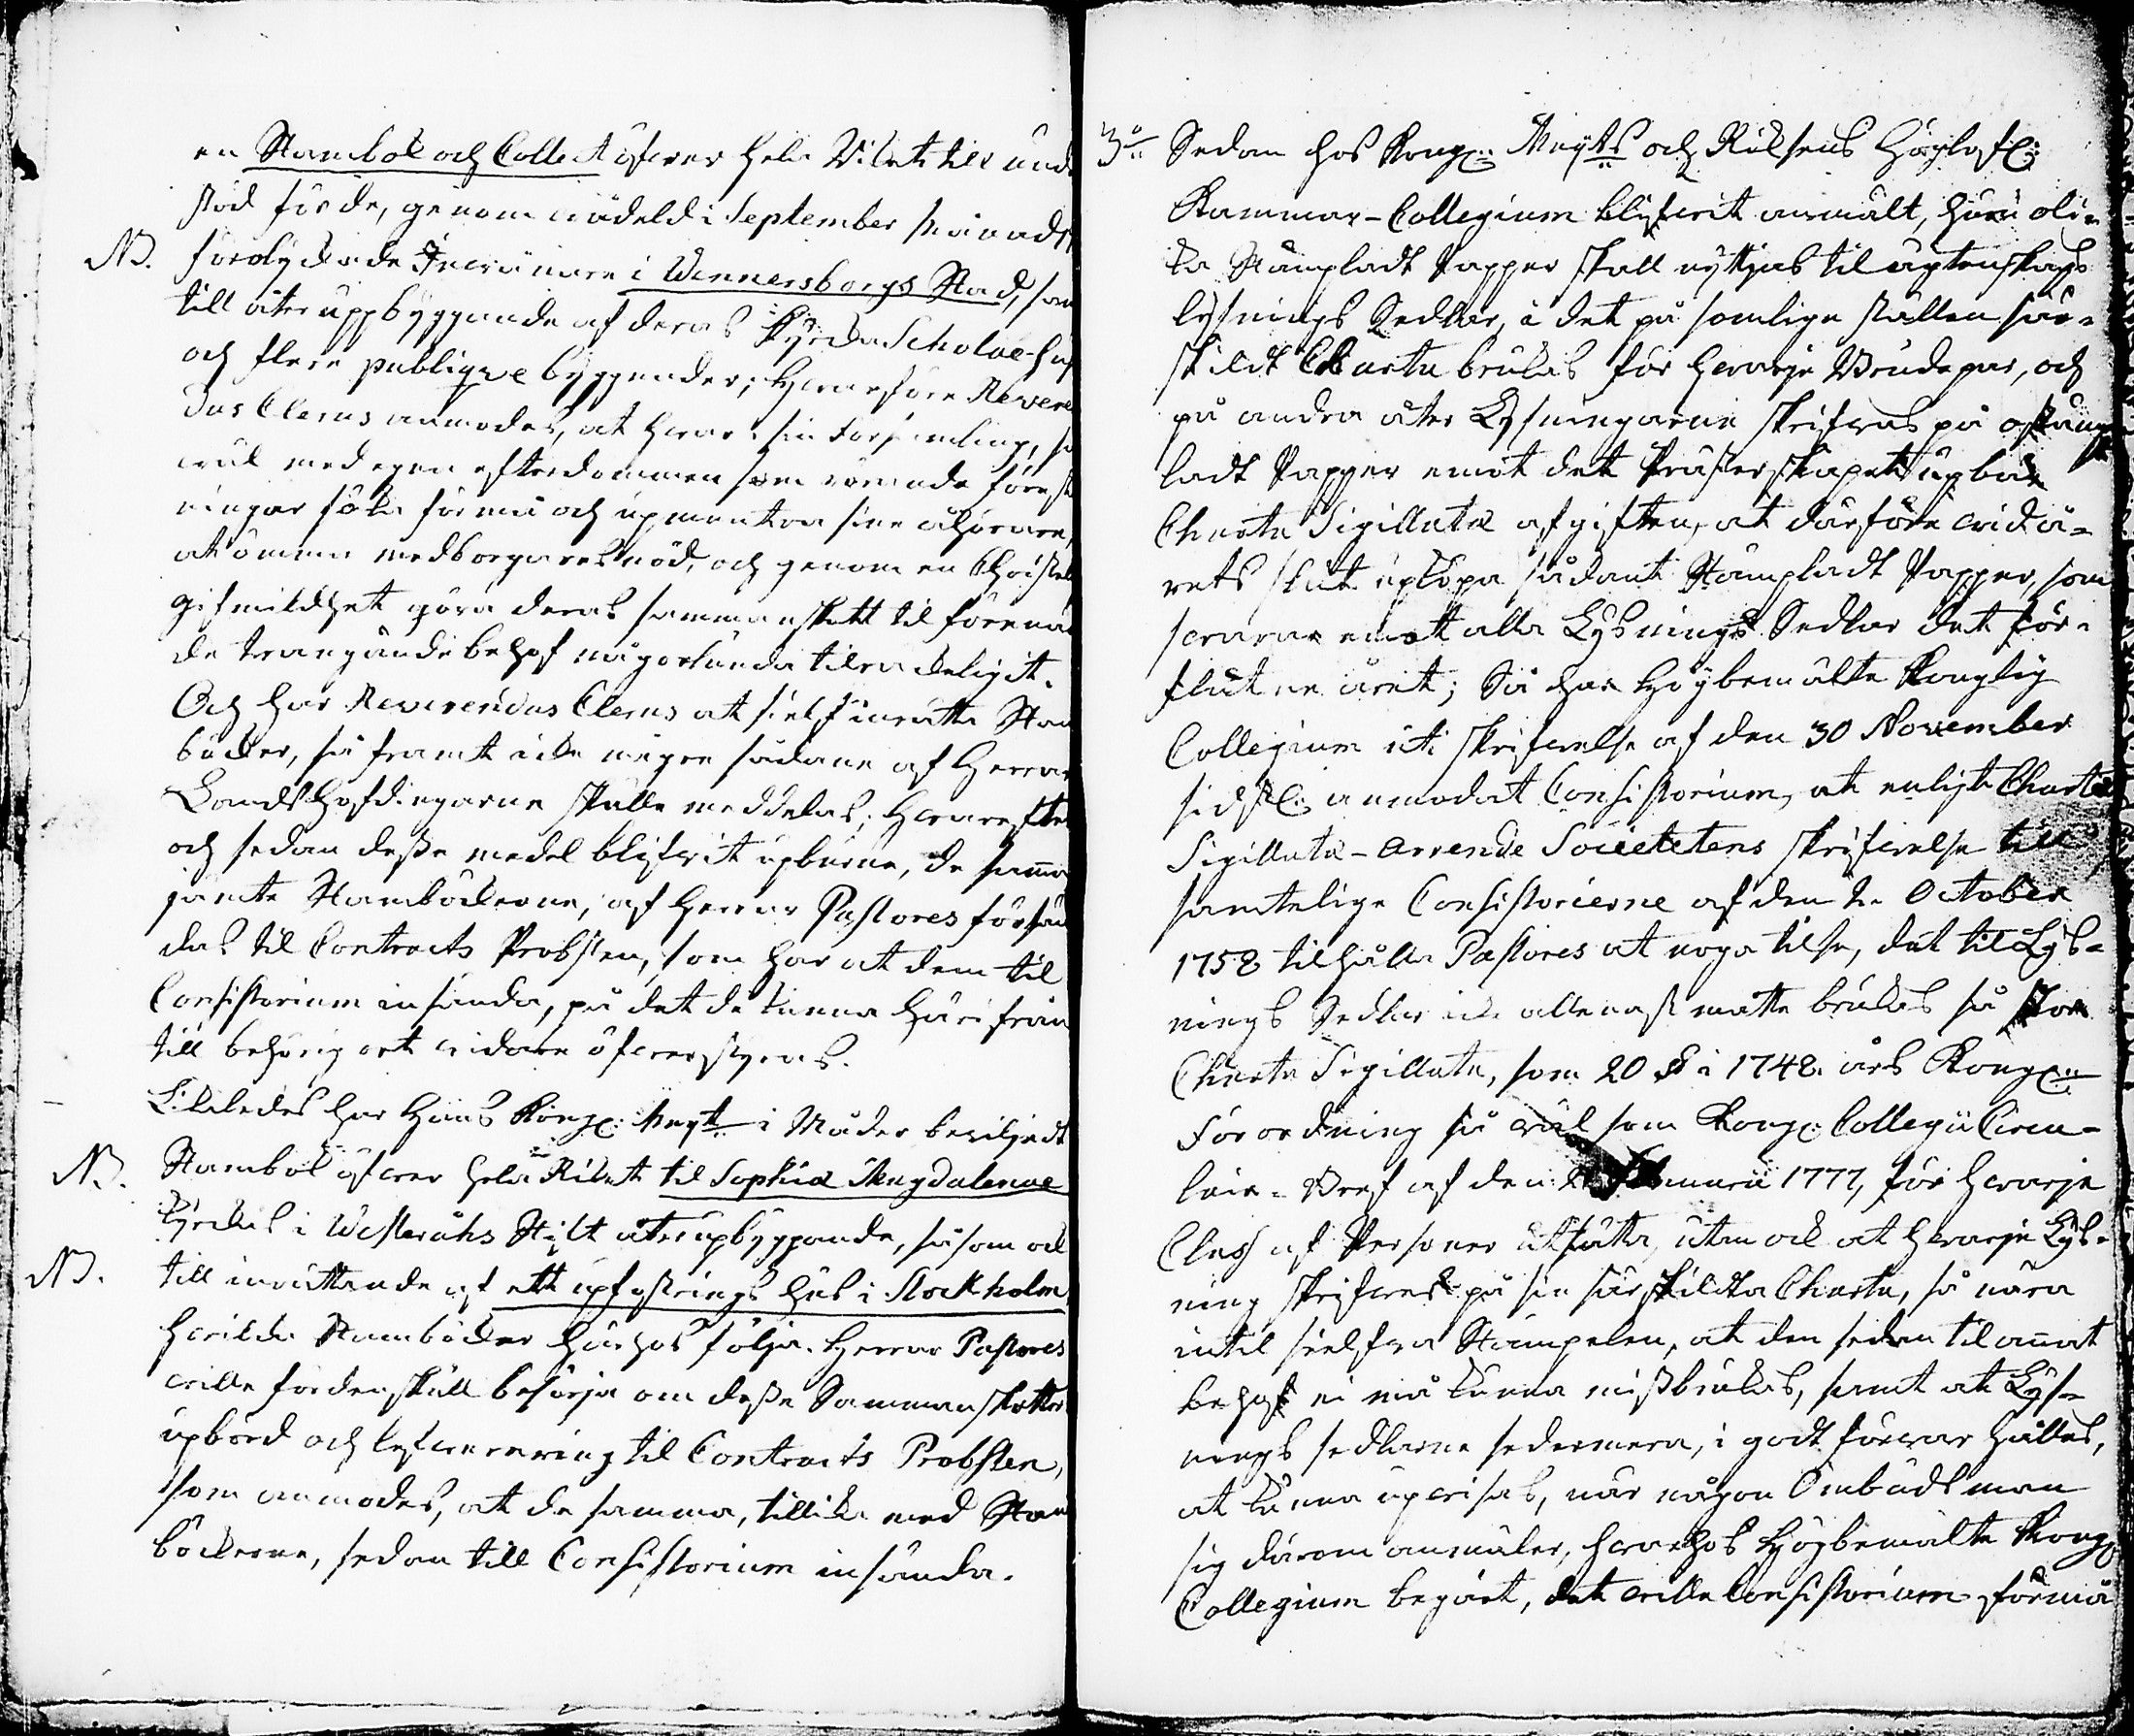 en Stambok och Collect öfwer hela Riket till und
stöd för de, genom wådeld i September månad
NB. förolyckade Inwånare i Wennersborgs Stad, sam
till återuppbyggande af deras Kyrka Scholae-hus
och flere publiqve byggnader; Hwarföre Reveren
dus Clerus anmodas, at hwar i sin Församling, så
wäl med egen efterdömmen som rörande förest
ningar söka förmå och upmuntra sine åhörare,
at ömma medborgares nöd, och genom en Christel
gifmildhet göra deras sammanskott til förenäm
de trängande behof någorlunda tilräckeligit.
Och har Reverendus Clerus at sielf inrätta Stam
böcker, så framt icke någre sådane af Herrar
Landshöfdingarne skulle meddelas; Hwarefter
och sedan desse medel blifwit upburne, de samma
jämte Stamböckerne, af Herrar Pastores försän
das til Contracts Probsten, som har at dem til
Consistorium insända, på det de kunna härifrån
till behörig ort widare öfwerstyras.
Likaledes har Hans Kongl. Mayt i Nåder beviljadt
NB. Stambok öfwer hela Riket til Sophiae Magdalenae
Kyrkas i Westeråhs Stift återupbyggande, så som ock
NB. till inrättande af ett upfostrings hus i Stockholm
hwilka Stamböcker härhos följa. Herrar Pastores
wille fördenskull besörja om desse Sammanskotters
upbörd och lefwerering til Contracts Probsten,
som anmodas, at de samma, tillika med Stam
böckerne, sedan till Consistorium insända.
3o Sedan hos Kongl. Mayts och Riksens Höglofl.
Kammar-Collegium blifwit anmält, huru oli-
ka Stämpladt Papper skall nyttjas til ägtenskaps
lysnings Sedlar, i det på somlige ställen sär-
skildt Charta brukas för hwarje Brudepar, och
på andra åter Lysningarne skrifwas på ostämp
ladt Papper emot det Prästerskapet upbär
Charta Sigillatae afgiften, at därföre wid å-
rets slut upköpa sådant Stämpladt Papper, som
swarar emot alla Lysnings Sedlar det för-
flutne året; Så har Högbemälte Konglig
Collegium uti skrifwelse af den 30 November
sidstl. anmodat Consistorium, at enligt Chartae
Sigillatae-Arrende Societetens skrifwelse till
samtelige Consistorierne af den 2. October
1758 tilhålla Pastores at noga tilse, det til Lys-
nings Sedlar icke allenast måtte brukas så stor
Charta Sigillata, som 20 § i 1748. års Kongl.
Förordning så wäl som Kongl. Collegii Circu-
lair-Bref af den Februarii 1777, för hwarje
Class af Personer utsätta, utan ock at hwarje Lys-
ning skrifwes på sin särskildta Charta, så nära
intil sielfwa Stämpelen, at den sedan til annat
behof ei må kunna missbrukas, samt at Lys-
nings sedlarne sedermera, i godt förwar hållas,
at kunna upwisas, när någon Ombudsman
sig därom anmäler, hwarhos Högbemälte Kongl.
Collegium begärt, det wille Consistorium förmå